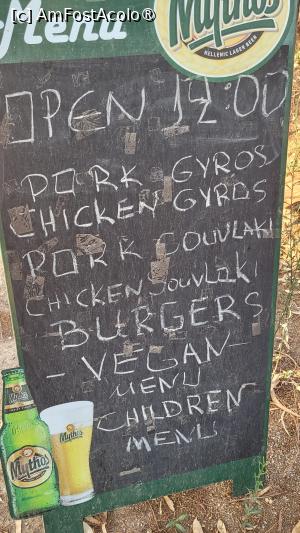 [c] AmFostAcolo ®
Menu
Mythos
HELLENIC LAGER BEER
OPEN 12:00
PORK GYROS
CHICKEN GYROS
PORK SOUVLAKI
CHICKEN SOUVLAKI
BURGERS
- VEGAN -
MENU
CHILDREN
MENU
Mythos
Mythos